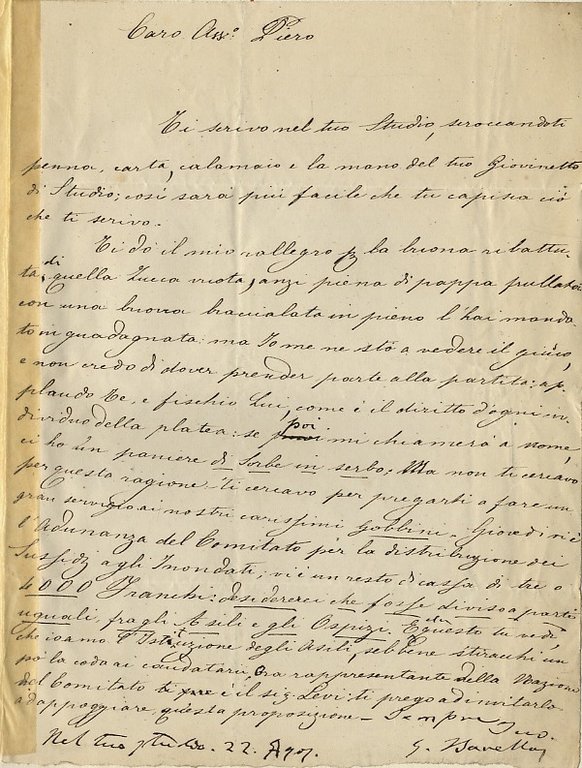 Caro Ass.o Piero
Ti scrivo nel tuo Studio, scroccandoti
penna, carta, calamaio e la mano del tuo Giovinetto
di Studio; così sarà più facile che tu capisca ciò
che ti scrivo.
Ti dò il mio rallegro p la buona ribattu-
ta di quella Zucca vuota, anzi piena di pappa
con una buona bracciolata in pieno l'hai manda
to in guadagnata: ma Io me ne stò a vedere il giuoco,
e non credo di dover prender parte alla partita: ap
plaudo Te, e fischio Lui, come è il diritto d'ogni in
dividuo della platea: se poi mi chiamerà a nome,
ci ho un paniere di Sorbe in serbo; Ma non ti cercavo
per questa ragione: ti cercavo per pregarti a fare un
gran servigio ai nostri carissimi Gobbini. Giovedi vi è
l'Adunanza del Comitato per la distribuzione dei
Sussidj agli Inondati; vi è un resto di cassa di tre o
4000 Franchi: desidererei che fosse diviso a parti
uguali, fra gli Asili e gli Ospizi. E questo tu vedi,
che io amo l'Istituzione degli Asili, sebbene stiracchi un
pò la coda ai caudatari. Ora rappresentante della Nazione
nel Comitato è il sig. Levi: ti prego ad invitarlo
ad appoggiare questa proposizione - Sempre tuo.
Nel tuo studio. 22. Ag
G. Barellai